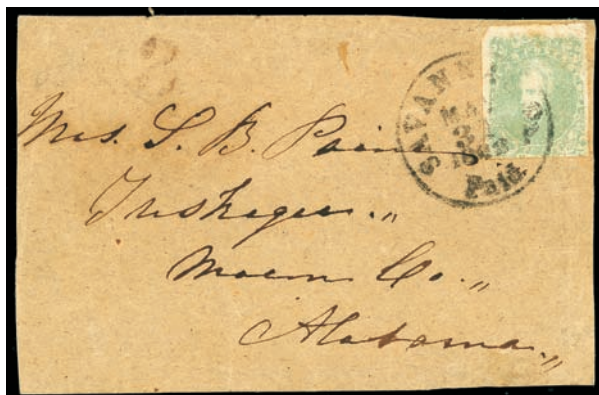 SAVANN
MA
3
186
Paid
Mrs. S. B. Paine
Tuskegee.,,
Macon Co.,,
Alabama.,,